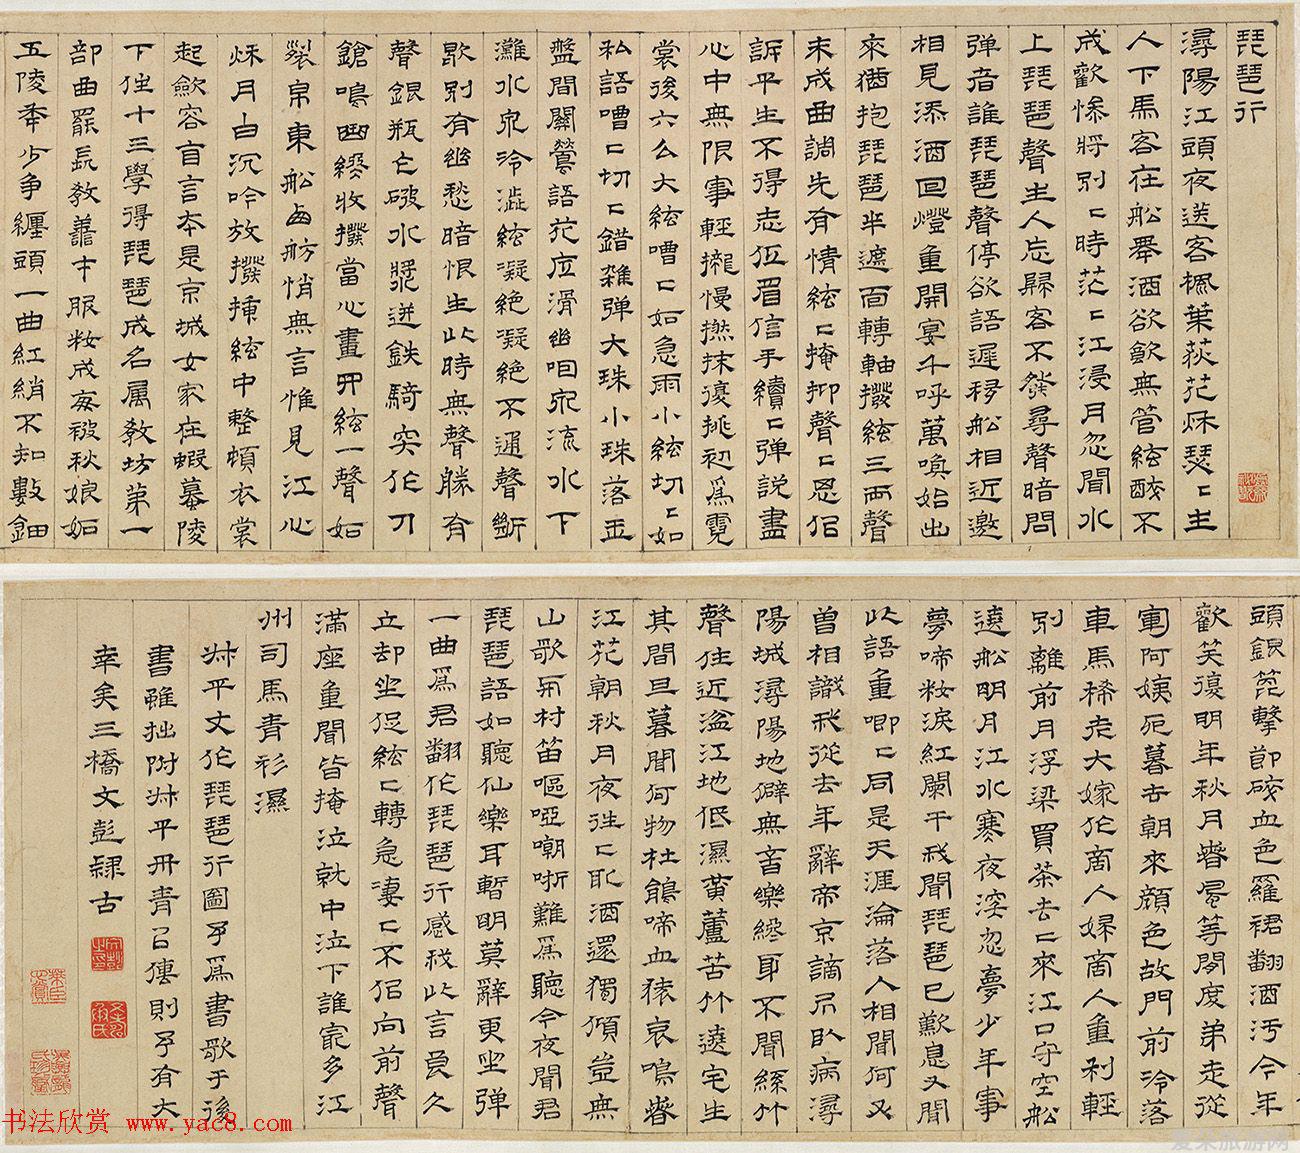 琵琶行
潯陽江頭夜送客楓葉荻花秌瑟〻主
人下馬客在船舉酒欲飲無管絃醉不
成歡慘將別〻時茫〻江浸月忽聞水
上琵琶聲主人忘歸客不發尋聲暗問
彈者誰琵琶聲停欲語遲移船相近邀
相見添酒回燈重開宴千呼萬喚始出
來猶抱琵琶半遮面轉軸撥絃三兩聲
未成曲調先有情絃〻掩抑聲〻思似
訴平生不得志低眉信手續〻彈說盡
心中無限事輕攏慢撚抹復挑初為霓
裳後六么大絃嘈〻如急雨小絃切〻如
私語嘈〻切〻錯雜彈大珠小珠落玉
盤間關鶯語花底滑幽咽泉流水下
灘水泉冷澀絃凝絕凝絕不通聲漸
歇別有幽愁暗恨生此時無聲勝有
聲銀瓶乍破水漿迸鉄騎突作刀
鎗鳴曲終收撥當心畫四絃一聲如
裂帛東船西舫悄無言惟見江心
秌月白沉吟放撥揷絃中整頓衣裳
起斂容自言本是京城女家在蝦蟇陵
下住十三學得琵琶成名属教坊第一
部曲罷長教善才服妝成每被秋娘妬
五陵年少爭纏頭一曲紅綃不知數鈿
頭銀篦擊節碎血色羅裙翻酒污今年
歡笑復明年秋月春風等閒度弟走從
軍阿姨死暮去朝來顏色故門前冷落
車馬稀老大嫁作商人婦商人重利輕
別離前月浮梁買茶去〻來江口守空船
遶船明月江水寒夜深忽夢少年事
夢啼妝淚紅闌干我聞琵琶已歎息又聞
此語重唧〻同是天涯淪落人相聞何必
曾相識我從去年辭帝京謫居臥病潯
陽城潯陽地僻無音樂終歲不聞絲竹
聲住近湓江地低濕黃蘆苦竹遶宅生
其間旦暮聞何物杜鵑啼血猿哀鳴春
江花朝秋月夜往〻取酒還獨傾豈無
山歌與村笛嘔啞嘲哳難為聽今夜聞君
琵琶語如聽仙樂耳暫明莫辭更坐彈
一曲為君翻作琵琶行感我此言良久
立却坐促絃〻轉急淒〻不似向前聲
滿座重聞皆掩泣就中泣下誰寂多江
州司馬青衫濕
叔平丈作琵琶行圖予為書歌于後
書雖拙附叔平丹青以傳則予有大
幸矣三橋文彭隸古
书法欣赏 www.yac8.com